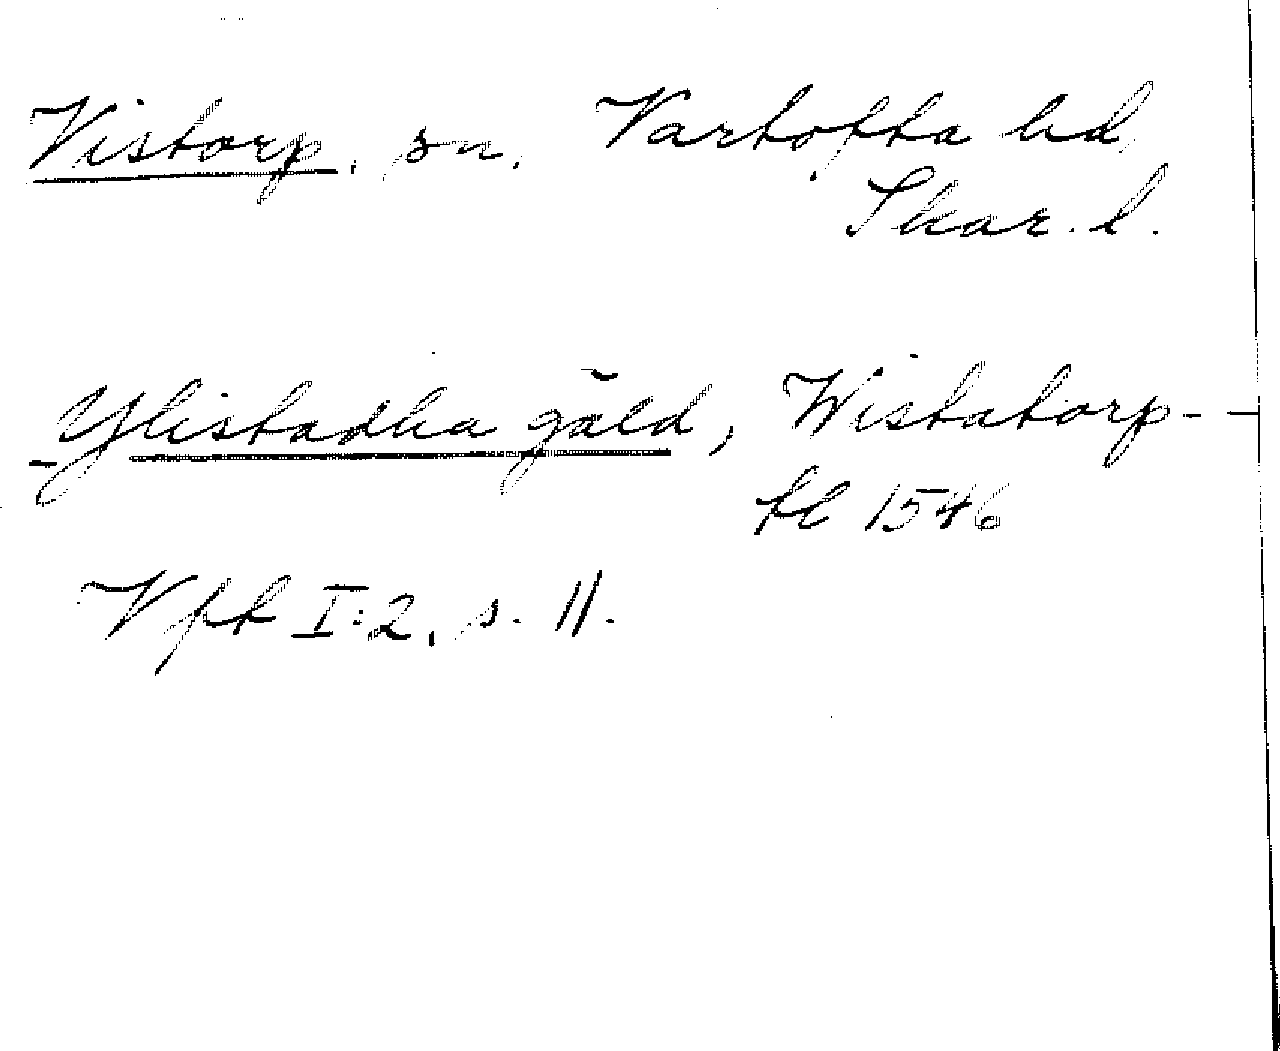 Vistorp, sn. Vartofta hd,
Skar. l.
Ylistadha gäld, Wistatorp -
tl 1546
Vft I:2, s. 11.